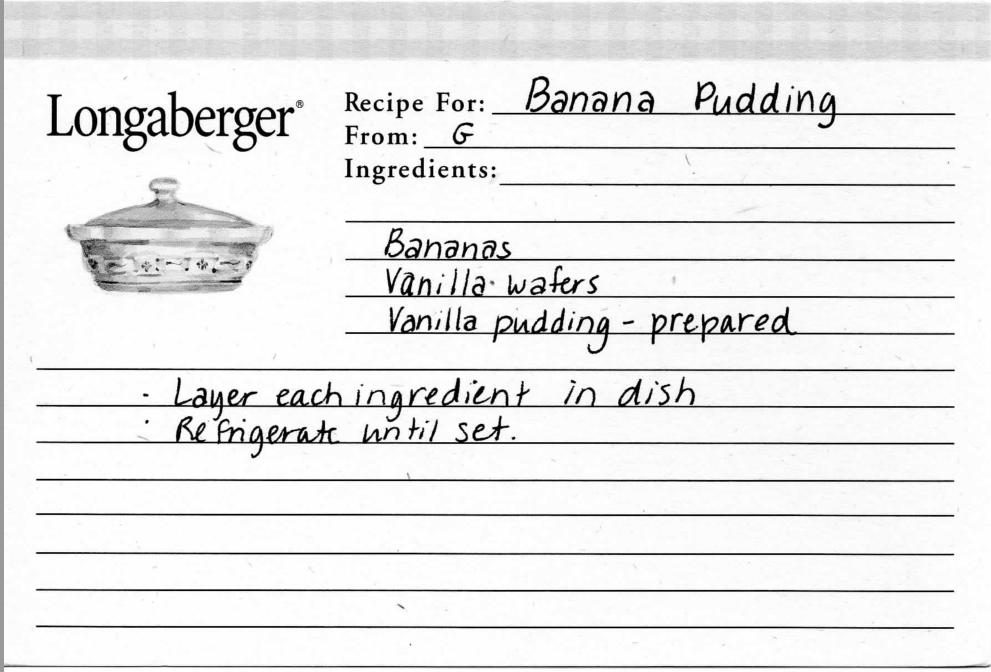 Longaberger®
Recipe For: Banana Pudding
From: G
Ingredients:
Bananas
Vanilla wafers
Vanilla pudding - prepared
· Layer each ingredient in dish
· Refrigerate until set.